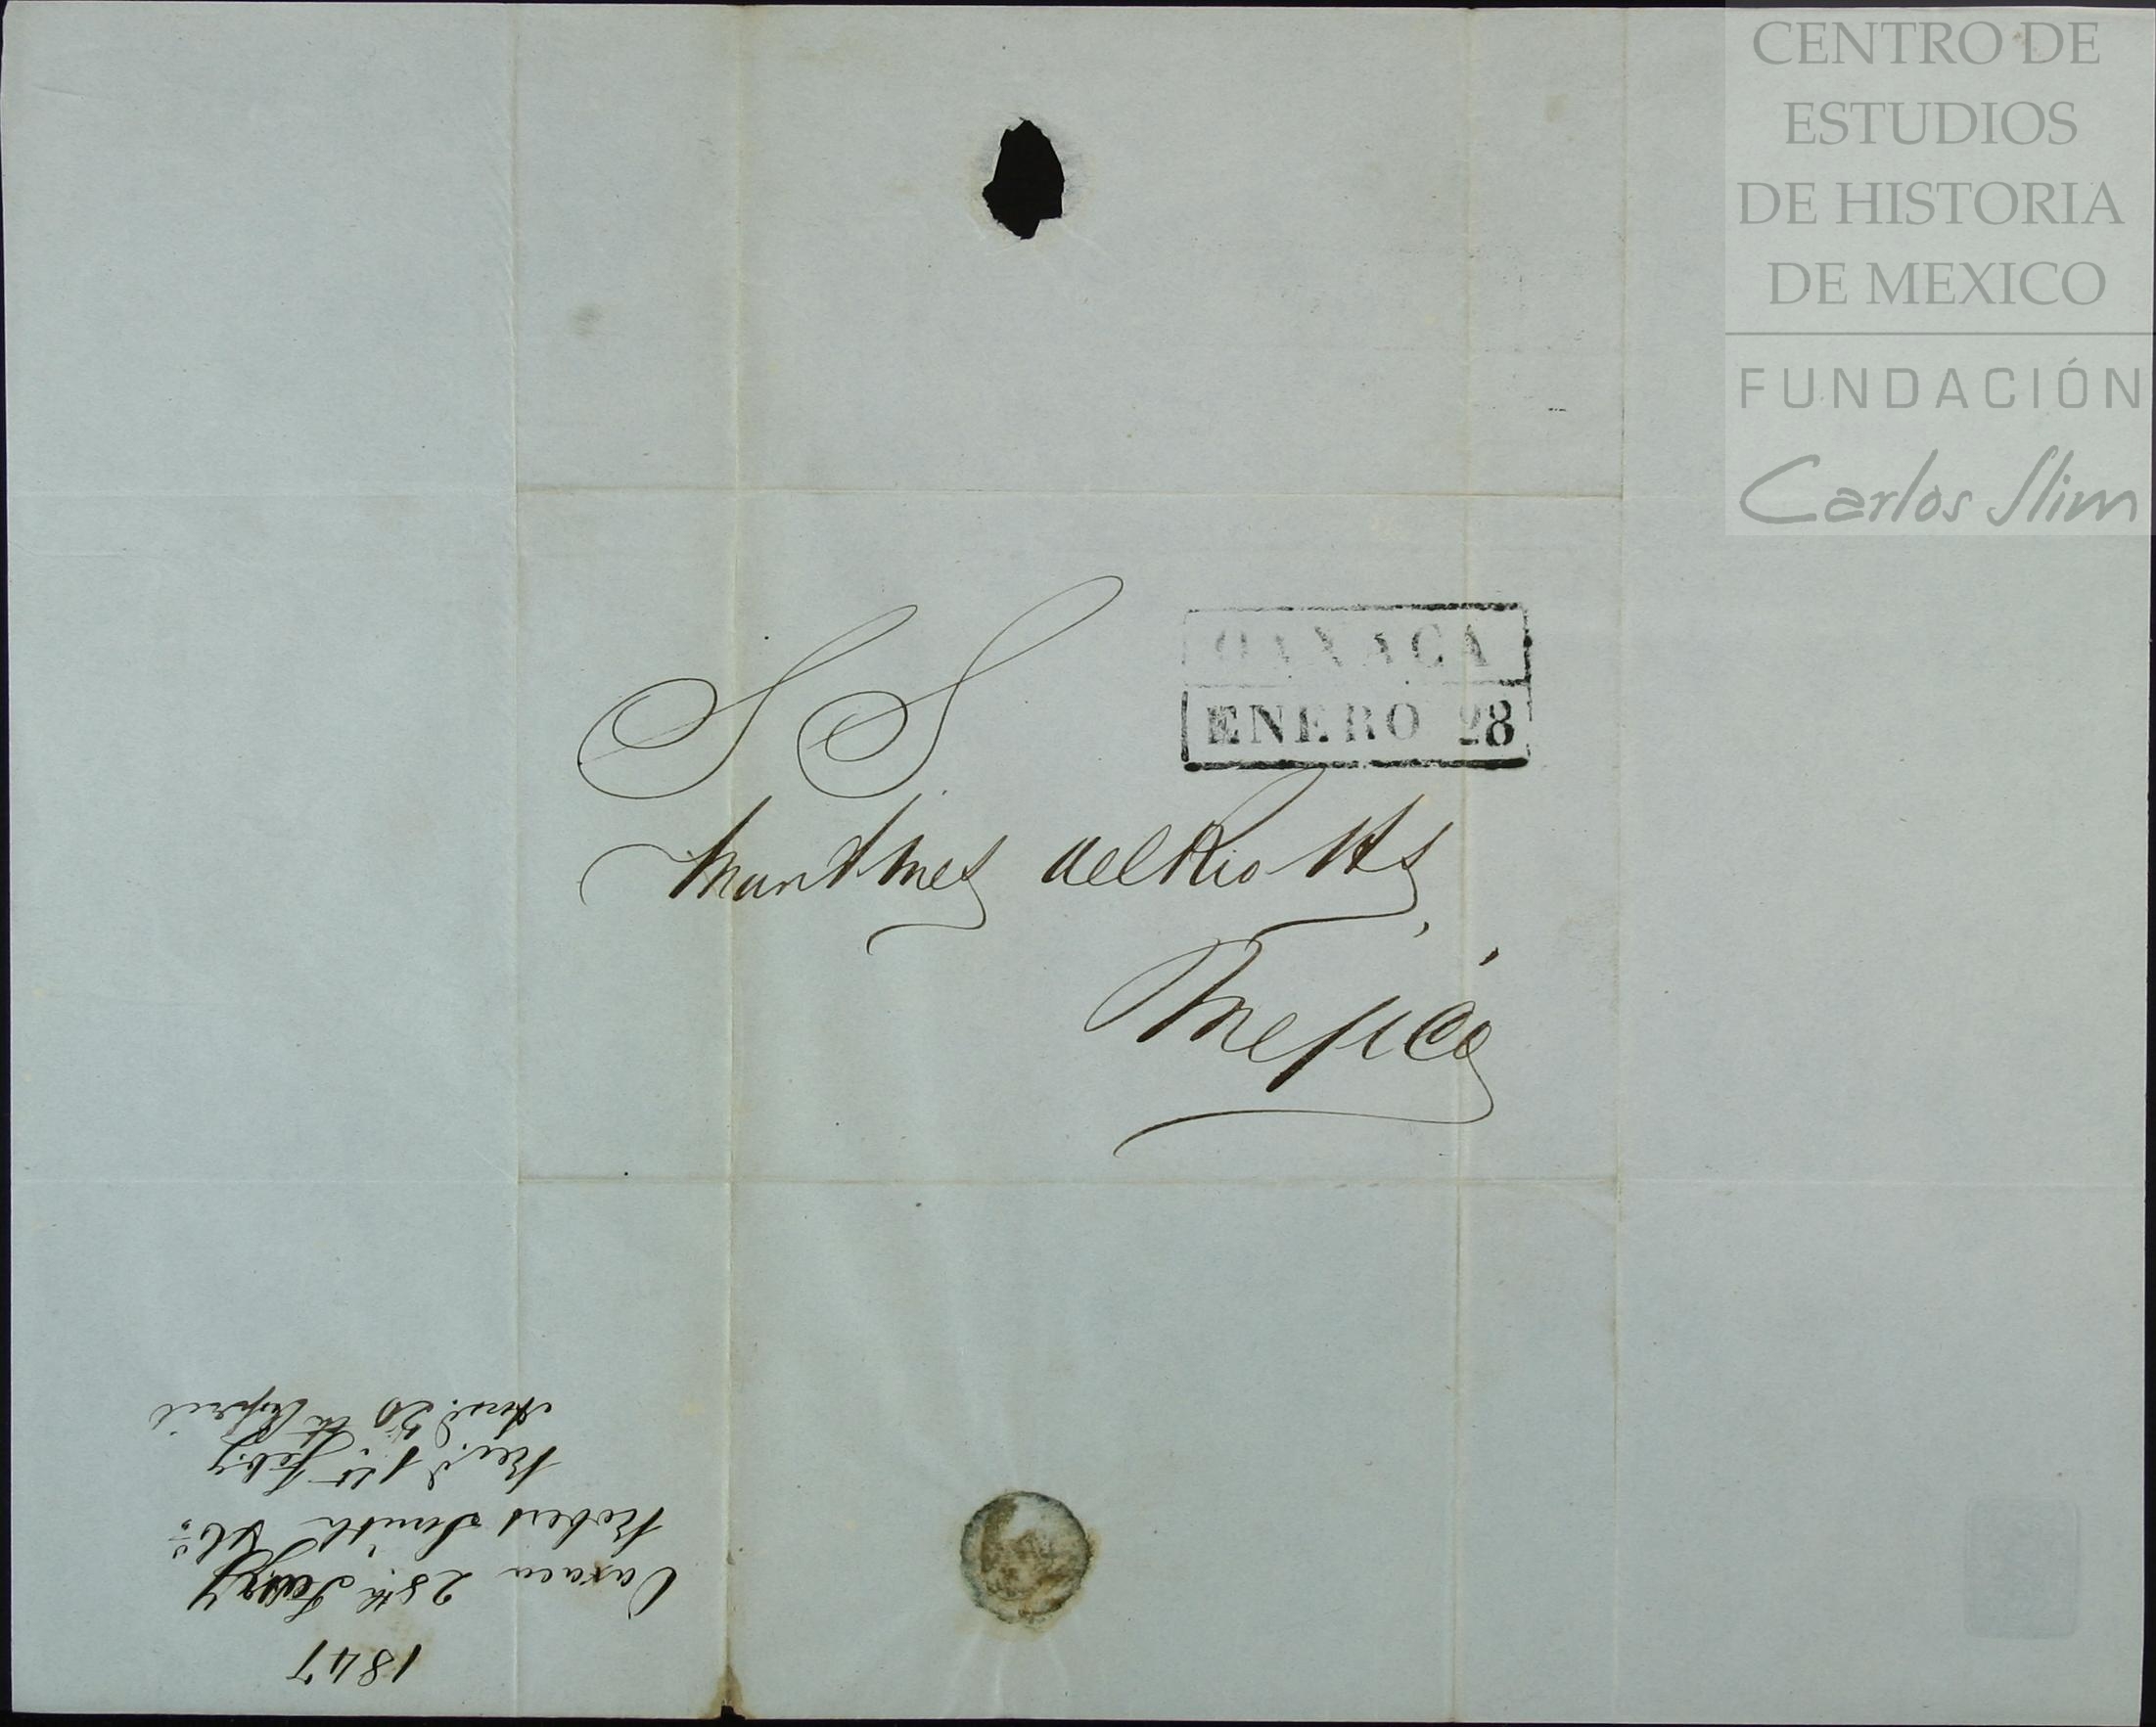 CENTRO DE
ESTUDIOS
DE HISTORIA
DE MEXICO
FUNDACIÓN
Carlos Slim
OAXACA
ENERO 28
S S
Martinez del Rio Hs
Mejico
1847
Oaxaca 28th Jany
Robert Smith
Rec.d 1st Feby
Ansd. 20th April